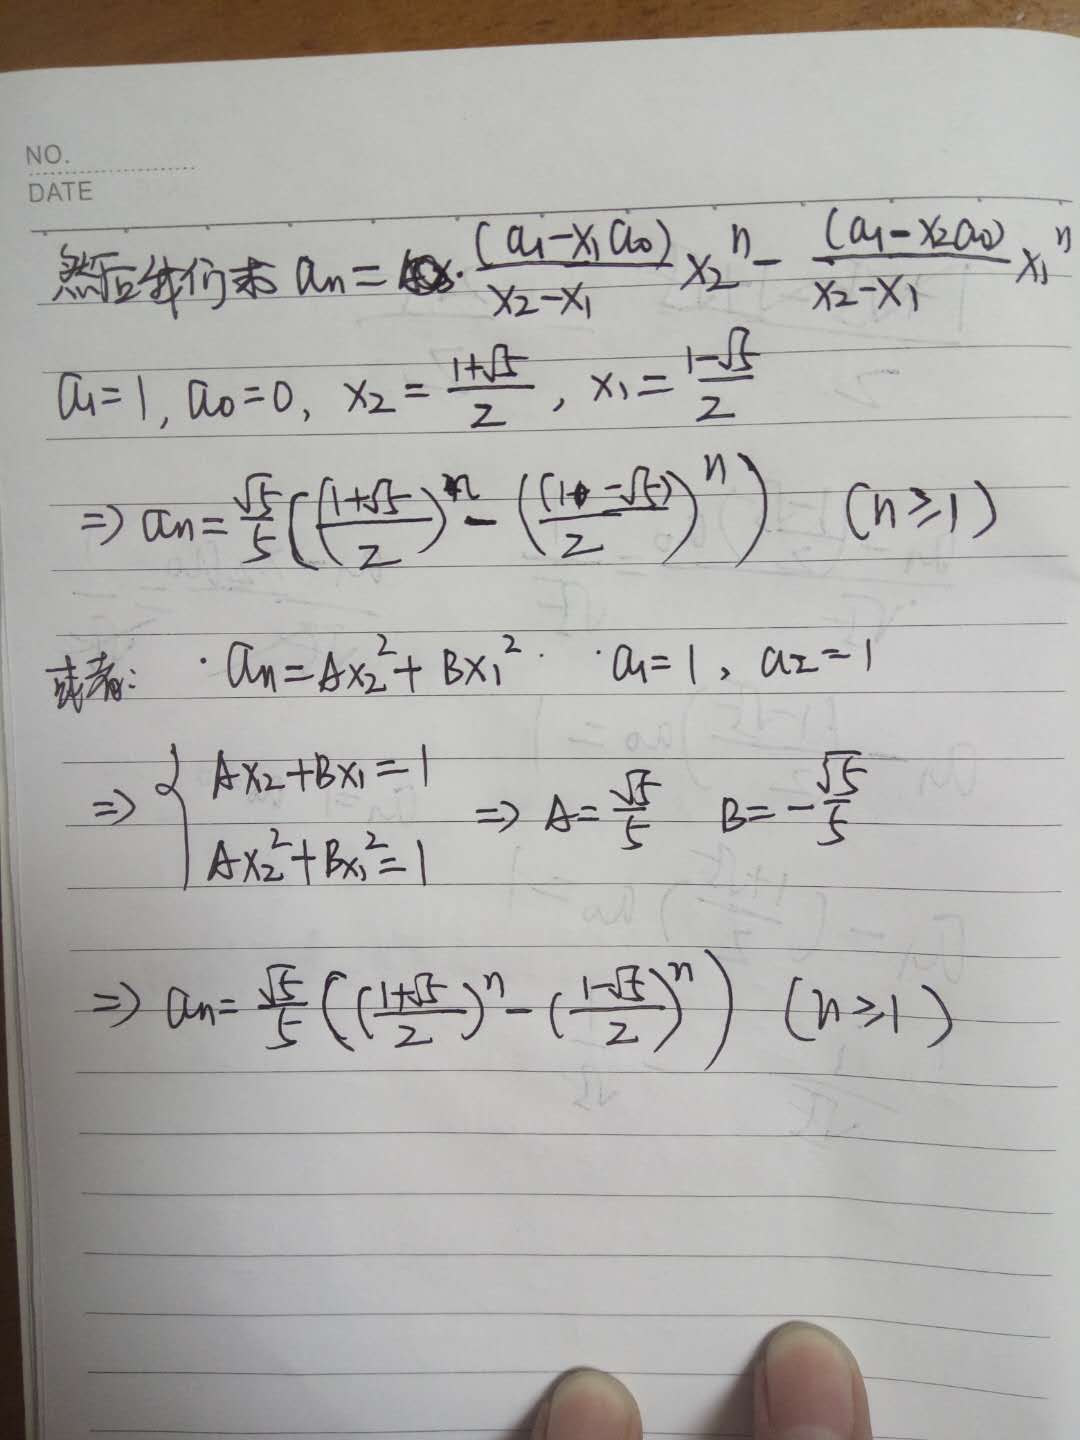 NO.
DATE
然后我们求 aₙ = (a₁-x₁a₀)/(x₂-x₁) x₂ⁿ - (a₁-x₂a₀)/(x₂-x₁) x₁ⁿ
a₁=1, a₀=0, x₂ = (1+√5)/2, x₁ = (1-√5)/2
⇒ aₙ = √5/5 (((1+√5)/2)ⁿ - ((1-√5)/2)ⁿ) (n≥1)
或者: aₙ = Ax₂² + Bx₁² a₁=1, a₂=1
⇒ { Ax₂+Bx₁=1
Ax₂²+Bx₁²=1 ⇒ A=√5/5 B=-√5/5
⇒ aₙ = √5/5 (((1+√5)/2)ⁿ - ((1-√5)/2)ⁿ) (n≥1)